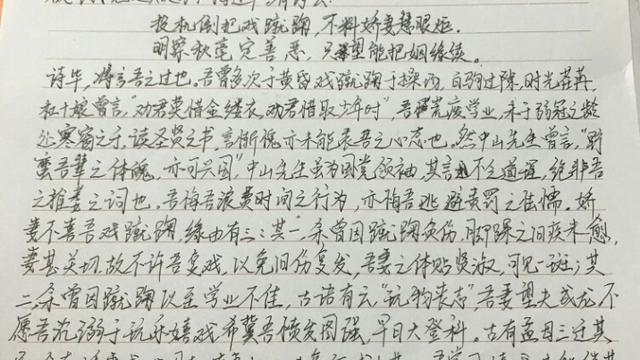 投机倒把戏蹴鞠，不料娇妻慧眼炬。
明察秋毫定善恶，只望能把姻缘续。
诗毕，得言吾之过也。吾曾多次于黄昏戏蹴鞠于操场，白驹过隙，时光荏苒，
杜十娘曾言"劝君莫惜金缕衣，劝君惜取少年时"，吾荒废学业，未于弱冠之龄
处寒窗之下，读圣贤之书，言惭愧亦未能表吾之心态也。然中山先生曾言，"野
蛮吾辈之体魄，亦可兴国"中山先生虽为国党领袖，其言不乏道理，绝非吾
之推委之词也。吾悔吾浪费时间之行为，亦悔吾逃避责罚之怯懦。娇
妻不喜吾戏蹴鞠，缘由有三：其一，余曾因蹴鞠负伤，脚踝之旧疾未愈，
妻甚关切，故不许吾多戏，以免旧伤复发，吾妻之体贴贤淑，可见一斑；其
二，余曾因蹴鞠以至学业不佳，古语有云"玩物丧志"，吾妻望夫成龙，不
愿吾沉溺于玩乐嬉戏，希冀吾愤发图强，早日大登科。古有孟母三迁其